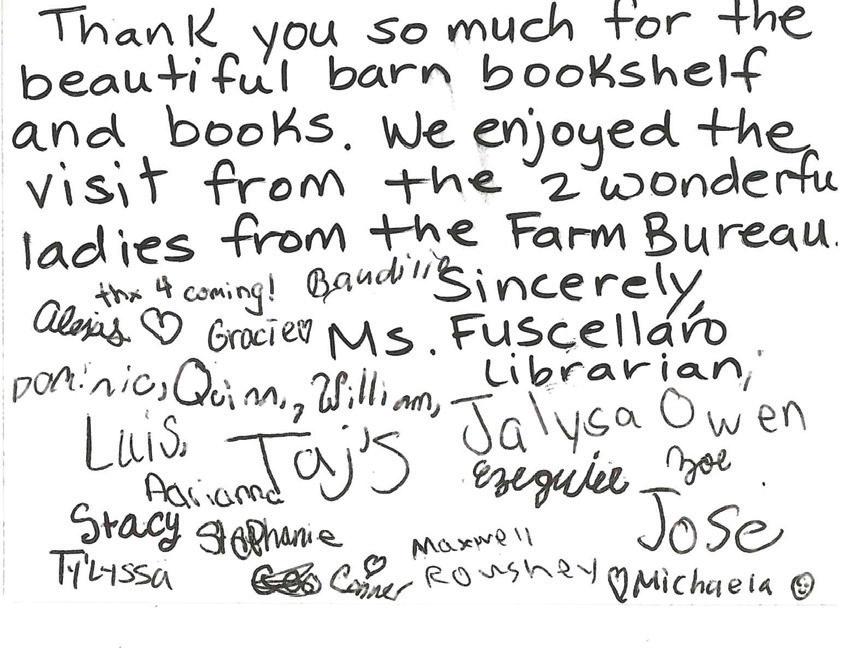 Thank you so much for the
beautiful barn bookshelf
and books. We enjoyed the
visit from the 2 wonderfu
ladies from the Farm Bureau.
thx 4 coming! Baudilio Sincerely,
Alexis ♡ Gracie♡ Ms. Fuscellaro
Librarian,
Dominic, Quinn, William,
Luis, Taj's Jalysa Owen
Arianna Ezequiel Zoe
Stacy Stephanie Jose
Ty'Lyssa Conner ♡ Maxwell
Roushey ♡Michaela ☺